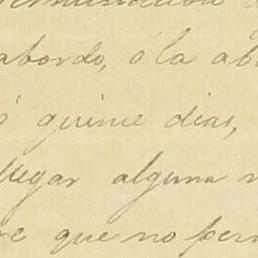 abordo, ó la ab
ó quince dias,
llegar alguna n
que no perm